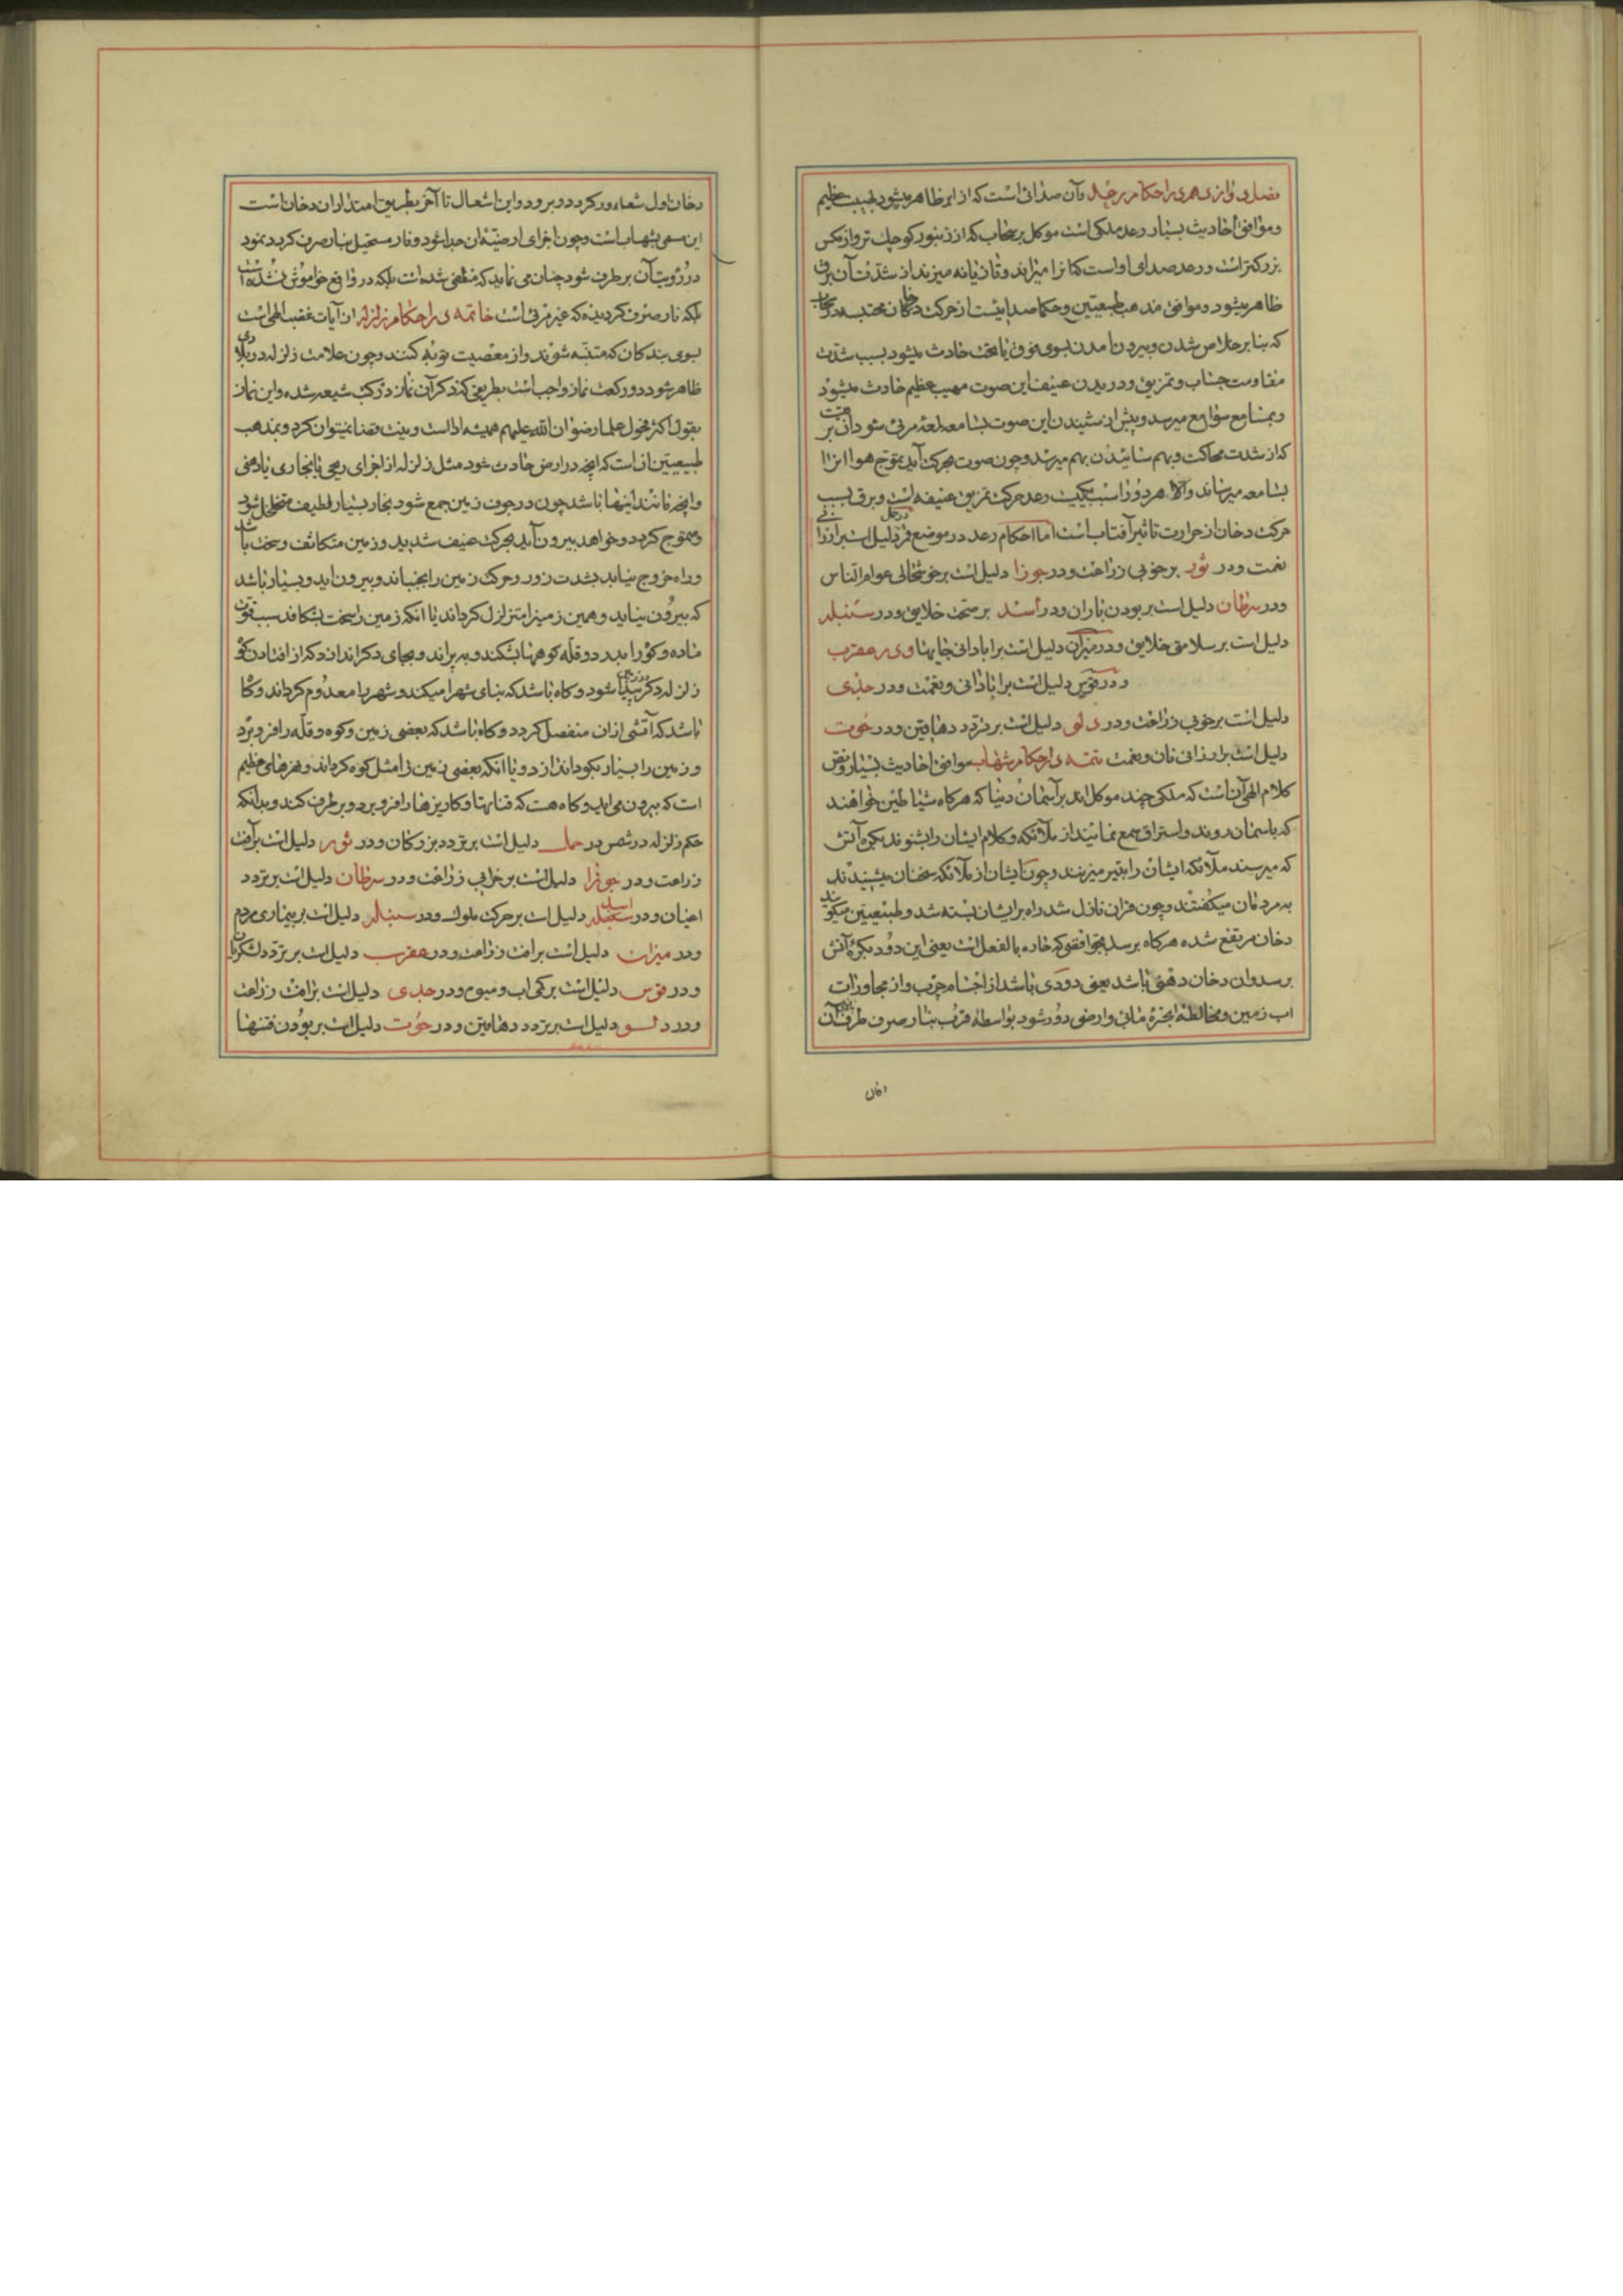 فصل دوازدهم در احکام رعد و آن صدائی است که از ابر ظاهر میشود بهیبت عظیم
و موافق احادیث بسیار رعد ملکی است موکل بر سحاب که از زنبور کوچک تر و از مکس
بزرکتر است و رعد صدای او است که ابر را میراند و تازیانه میزند از شدت آن برق
ظاهر میشود و موافق مذهب طبیعیین و حکما صدائیست از حرکت دخان محتبسه در سحاب
که بنا بر خلاص شدن و بیرون امدن بسوی فوق یا تحت حادث میشود بسبب شدت
مقاومت و تمزیق و دریدن عنیف این صوت مهیب عظیم حادث میشود
و بمسامع سوامع میرسد و پیش از شنیدن این صوت بسامعه لمعه مرئی شود از
که از شدت محاکت و بهم سائیدن بهم میرسد و چون صوت بحرکت آمد بتموج هوا انرا
بسامعه میرساند والا هر دو را سبب یکیست رعد حرکت تمزیق عنیفه است و برق بسبب
حرکت دخان از حرارت تاثیر آفتاب است اما احکام رعد در موضع قمر در حمل دلیل است بر ارزانی
نعمت و در ثور بر خوبی زراعت و در جوزا دلیل است بر خوشحالی عوام الناس
و در سرطان دلیل است بر بودن باران و در اسد بر صحت خلایق و در سنبله
دلیل است بر سلامتی خلایق و در میزان دلیل است بر ابادانی جایها و در عقرب
و در قوس دلیل است بر ابادانی و نعمت و در جدی
دلیل است بر خوبی زراعت و در دلو دلیل است بر تردد دهاقین و در حوت
دلیل است بر ارزانی نان و نعمت تتمه در احکام شهاب موافق احادیث بسیار و نص
کلام الهی آن است که ملکی چند موکل اند بر آسمان دنیا که هر کاه شیاطین خواهند
که باسمان روند و استراق سمع نمایند از ملائکه و کلام ایشان را بشنوند بکره آتش
که میرسند ملائکه ایشان را بتیر میزنند و چون ایشان از ملائکه سخنان میشنیدند
به مردمان میکفتند و چون قران نازل شد راه بر ایشان بسته شد و طبیعیین میکویند
دخان مرتفع شده هر کاه برسد بجو افقو که حاره بالفعل است یعنی این دود بکره آتش
برسد و ان دخان دهنی باشد یعنی دودی باشد از اجسام چرب و از مجاورات
اب زمین و مخالطة ابخرۀ مائی و ارضی دور شود بواسطۀ قرب بنار صرف طرف آن
دخان
دخان اول شعله ور کردد و برود و این اشعال تا آخر بطریق امتداد ان دخان است
این مسمی بشهاب است و چون اجزای ارضیۀ ان جدا شود و نار مستحیل بنار صرف کردد نمود
در رؤیت آن بر طرف شود چنان می نماید که منطفی شده است بلکه در واقع خواموش نشده است
بلکه نار صرف کردیده که غیر مرئی است خاتمه در احکام زلزله از آیات غضب الهی است
بسوی بندکان که متنبه شوند و از معصیت توبه کنند و چون علامت زلزله در بلادی
ظاهر شود دو رکعت نماز واجب است بطریقی که ذکر آن نماز در کتب شیعه شده و این نماز
بقول اکثر فحول علما رضوان الله علیهم همیشه ادا است و نیت قضا نمیتوان کرد و بمذهب
طبیعیین از است که انچه در ارض حادث شود مثل زلزله از اجزای ریحی یا بخاری یا دخنی
و انچه مانند اینها باشد چون در جوف زمین جمع شود بخار بسیار لطیف متخلخل شود
و متموج کردد و خواهد بیرون آید بحرکت عنیف شدید و زمین متکاثف و سخت باشد
و راه خروج نیابد بشدت زور و حرکت زمین را بجنباند و بیرون اید و بسیار باشد
که بیرون نیاید و همین زمینرا متزلزل کرداند یا انکه زمین را سخت بشکافد بسبب قوت
ماده و کوه را بدرد و قله کوهها بشکند و بپراند و بجای دکر اندازد که از افتادن کوه
زلزله دکر پیدا شود و کاه باشد که بنای شهرا میکند و شهر را معدوم کرداند و کاه
باشد که آتشی از ان منفصل کردد و کاه باشد که بعضی زمین و کوه و قله را فرو برد
و زمین را بسیار بکود اندازد و یا انکه بعضی زمین را مثل کوه کرداند و نهرهای عظیم
است که بیرون می اید و کاه هست که قناتها و کاریزها را فرو برد و بر طرف کند و بدانکه
حکم زلزله در شمس در حمل دلیل است بر تردد بزرکان و در ثور دلیل است بر آفت
زراعت و در جوزا دلیل است بر خرابی زراعت و در سرطان دلیل است بر تردد
اعیان و در اسد دلیل است بر حرکت ملوک و در سنبله دلیل است بر بیماری مردم
و در میزان دلیل است بر افت زراعت و در عقرب دلیل است بر تردد لشکریان
و در قوس دلیل است بر کمی اب و میوه و در جدی دلیل است بر افت زراعت
و در دلو دلیل است بر تردد دهاقین و در حوت دلیل است بر بودن فتنها